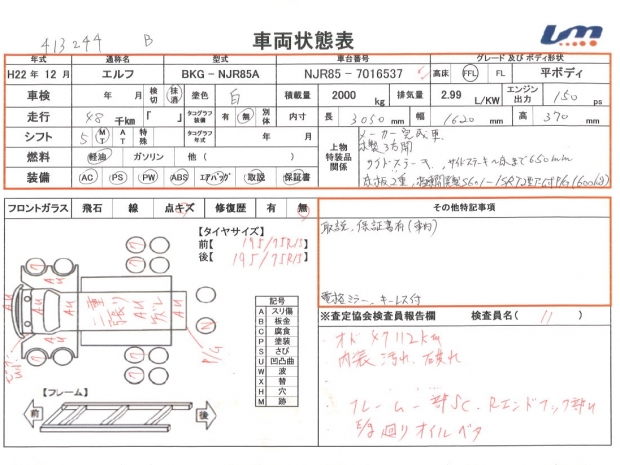 413244 B
車両状態表
年式 通称名 型式 車台番号 グレード 及び ボディ形状
H22 年 12 月 エルフ BKG - NJR85A NJR85 - 7016537 高床 FFL FL 平ボディ
車検 年 月 検切 抹消 塗色 白 積載量 2000 kg 排気量 2.99 L/KW エンジン出力 150 ps
走行 48 千km 「 」 タコグラフ装備 有 無 別体 内寸 長 3050 mm 幅 1620 mm 高 370 mm
シフト 5 MT AT 特殊 タコグラフ年式 年 月
燃料 軽油 ガソリン 他 ( )
装備 AC PS PW ABS エアバッグ 取説 保証書
上物特装品関係
メーカー完成車
木製3方開
フロントガラス 飛石 線 点キズ 修復歴 有 無
その他特記事項
取説、保証書有(車内)
電格ミラー、キーレス付
【タイヤサイズ】
前【195/75R15】
後【195/75R15】
AU AU AU AU
P/G
記号
A スリ傷
B 板金
C 腐食
P 塗装
S さび
U 凹凸曲
W 波
X 替
H 穴
M 跡
【フレーム】
前 後
※査定協会検査員報告欄 検査員名( 11 )
オド 47112km
内装 汚れ、破れ
フレーム一部SC、Rエンドフック部U
E/g廻りオイルベタ